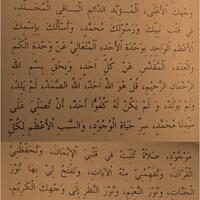 وَجْهِكَ الأَعْلَى، الْمُؤَيَّدِ الدَّائِمِ الْبَاقِي الْمُخَلَّدِ،
فِي قَلْبِ نَبِيِّكَ وَرَسُولِكَ مُحَمَّدٍ، وَأَسْأَلُكَ بِاسْمِكَ
الأَعْظَمِ الْوَاحِدِ بِوَحْدَةِ الأَحَدِ، الْمُتَعَالِي عَنْ وَحْدَةِ الْكَمِّ
وَالْعَدَدِ، الْمُقَدَّسِ عَنْ كُلِّ أَحَدٍ، وَبِحَقِّ بِسْمِ اللهِ
الرَّحْمَنِ الرَّحِيمِ، قُلْ هُوَ اللهُ أَحَدٌ، اللهُ الصَّمَدُ، لَمْ يَلِدْ،
وَلَمْ يُولَدْ، وَ لَمْ يَكُنْ لَهُ كُفُوًا أَحَدٌ، أَنْ تُصَلِّيَ عَلَى
سَيِّدِنَا مُحَمَّدٍ، سِرِّ حَيَاةِ الْوُجُودِ، وَالسَّبَبِ الأَعْظَمِ لِكُلِّ
مَوْجُودٍ، صَلَاةً تُثَبِّتُ فِي قَلْبِي الإِيمَانَ، وَتُحَفِّظُنِي
الْقُرْآنَ، وَتُفَهِّمُنِي مِنْهُ الآيَاتِ، وَتَفْتَحُ لِي بِهَا نُورَ
الْجَنَّاتِ، وَنُورَ النَّعِيمِ، وَنُورَ النَّظَرِ إِلَى وَجْهِكَ الْكَرِيمِ،